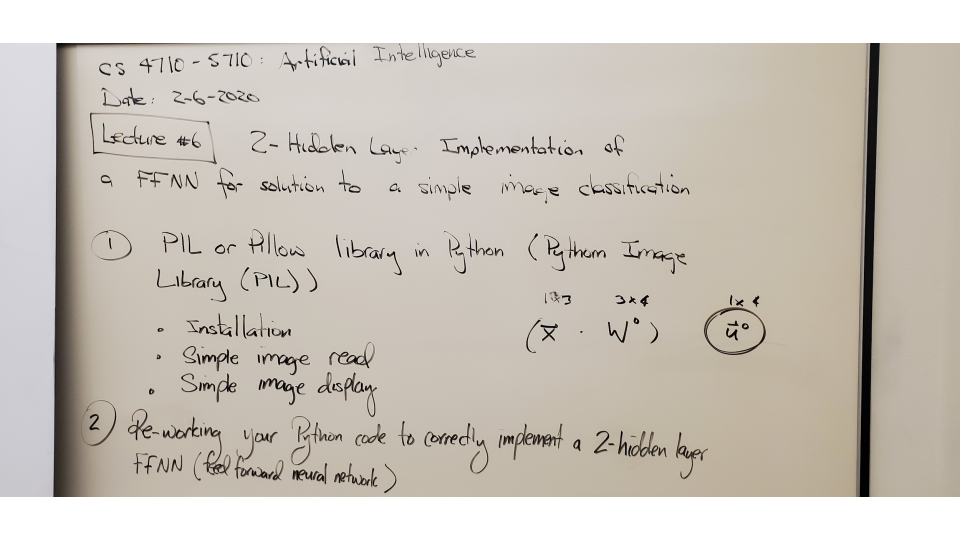 CS 4710 - 5710 : Artificial Intelligence
Date: 2-6-2020
Lecture #6 2-Hidden Layer Implementation of
a FFNN for solution to a simple image classification
1 PIL or Pillow library in Python (Python Image
Library (PIL))
1x3 3x4 1x4
• Installation (x̄ · W⁰) ū⁰
• Simple image read
• Simple image display
2 Re-working your Python code to correctly implement a 2-hidden layer
FFNN (feed forward neural network)